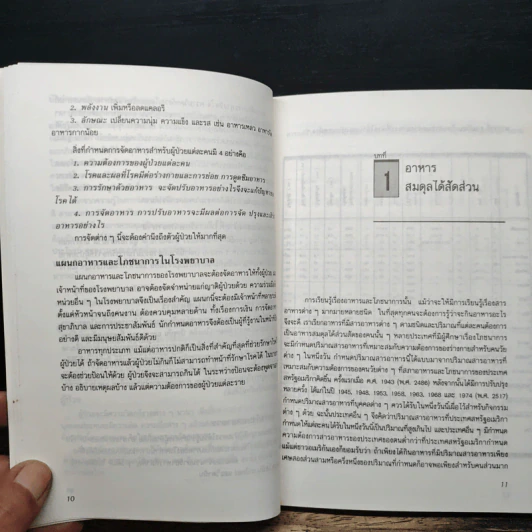 2. พลังงาน เพิ่มหรือลดแคลอรี
3. ลักษณะ เปลี่ยนความนุ่ม ความแข็ง และรส เช่น อาหารเหลว อาหาร
อาหารกากน้อย
สิ่งที่กำหนดการจัดอาหารสำหรับผู้ป่วยแต่ละคนมี 4 อย่างคือ
1. ความต้องการของผู้ป่วยแต่ละคน
2. โรคและผลที่โรคมีต่อร่างกายและการย่อย การดูดซึมอาหาร
3. การรักษาด้วยอาหาร จะจัดปรับอาหารอย่างไรจึงจะแก้ปัญหา
โรคได้
4. การจัดอาหาร การปรับอาหารจะมีผลต่อการจัด ปรุงและ
อาหารอย่างไร
การจัดต่าง ๆ นี้จะต้องคำนึงถึงตัวผู้ป่วยให้มากที่สุด
แผนกอาหารและโภชนาการในโรงพยาบาล
แผนกอาหารและโภชนาการของโรงพยาบาลจะต้องจัดอาหารให้ทั้งผู้ป่วย
เจ้าหน้าที่ของโรงพยาบาล อาจต้องจัดจำหน่ายแก่ญาติผู้ป่วยด้วย ความร่วมมือ
หน่วยอื่น ๆ ในโรงพยาบาลจึงเป็นเรื่องสำคัญ แผนกนี้จะต้องมีเจ้าหน้าที่
ตั้งแต่หัวหน้าจนถึงคนงาน ต้องควบคุมหลายด้าน ทั้งเรื่องการเงิน การจัด
สุขาภิบาล และการประชาสัมพันธ์ นักกำหนดอาหารจึงต้องเป็นผู้ที่รู้งานในหน้าที่
และมีมนุษยสัมพันธ์ดีด้วย
อาหารทุกประเภท แม้แต่อาหารปกติก็เป็นสิ่งสำคัญที่สุดที่ช่วยรักษา
ผู้ป่วยได้ ถ้าจัดอาหารแล้วผู้ป่วยไม่กินก็ไม่สามารถทำหน้าที่รักษาโรคได้ ใน
จะต้องช่วยป้อนให้ด้วย ผู้ป่วยจึงจะสามารถกินได้ ในระหว่างป้อนจะต้องพูด
บ้าง อธิบายเหตุผลบ้าง แล้วแต่ความต้องการของผู้ป่วยแต่ละราย
10
บทที่
1
อาหาร
สมดุลได้สัดส่วน
การเรียนรู้เรื่องอาหารและโภชนาการนั้น แม้ว่าจะให้มีการเรียนรู้เรื่องสาร
อาหารต่าง ๆ มากมายหลายชนิด ในที่สุดทุกคนจะต้องการรู้ว่าจะกินอาหารอะไร
จึงจะดี เราเรียกอาหารที่มีสารอาหารต่าง ๆ ตามชนิดและปริมาณที่แต่ละคนต้องการ
ว่าเป็นอาหารสมดุลได้สัดส่วนถูกต้องของคนนั้น ๆ หลายประเทศที่มีผู้ศึกษาเรื่องโภชนาการ
จะมีกำหนดปริมาณสารอาหารที่เหมาะสมกับความต้องการของร่างกายสำหรับคนวัย
ต่าง ๆ ในหนึ่งวัน กำหนดปริมาณสารอาหารนี้ได้แบบมาจากปริมาณสารอาหารที่
เหมาะสมกับความต้องการของคนวัยต่าง ๆ ที่สภาอาหารและโภชนาการของประเทศ
สหรัฐอเมริกาคิดขึ้น ครั้งแรกเมื่อ พ.ศ. 1943 (พ.ศ. 2486) หลังจากนั้นได้มีการปรับปรุง
หลายครั้ง ได้แก่ในปี 1945, 1948, 1953, 1958, 1963, 1968 และ 1974 (พ.ศ. 2517)
กำหนดปริมาณสารอาหารที่บุคคลต่าง ๆ ควรได้รับในหนึ่งวันนี้มีไว้สำหรับกิจกรรม
ต่าง ๆ ด้วย ฉะนั้นประเทศอื่น ๆ จึงคิดว่าปริมาณสารอาหารที่ประเทศสหรัฐอเมริกา
กำหนดให้แต่ละคนได้รับในหนึ่งวันนี้เป็นปริมาณที่สูงเกินไป และประเทศอื่น ๆ มีกำหนด
ความต้องการสารอาหารของประเทศของตนต่ำกว่าที่ประเทศสหรัฐอเมริกากำหนด
แม้แต่ชาวอเมริกาเองก็ยอมรับว่า ถ้าเพียงได้กินอาหารที่มีปริมาณสารอาหารเพียง
เศษสองส่วนสามหรือครึ่งหนึ่งของปริมาณที่กำหนดก็อาจพอเพียงสำหรับคนส่วนมาก
11